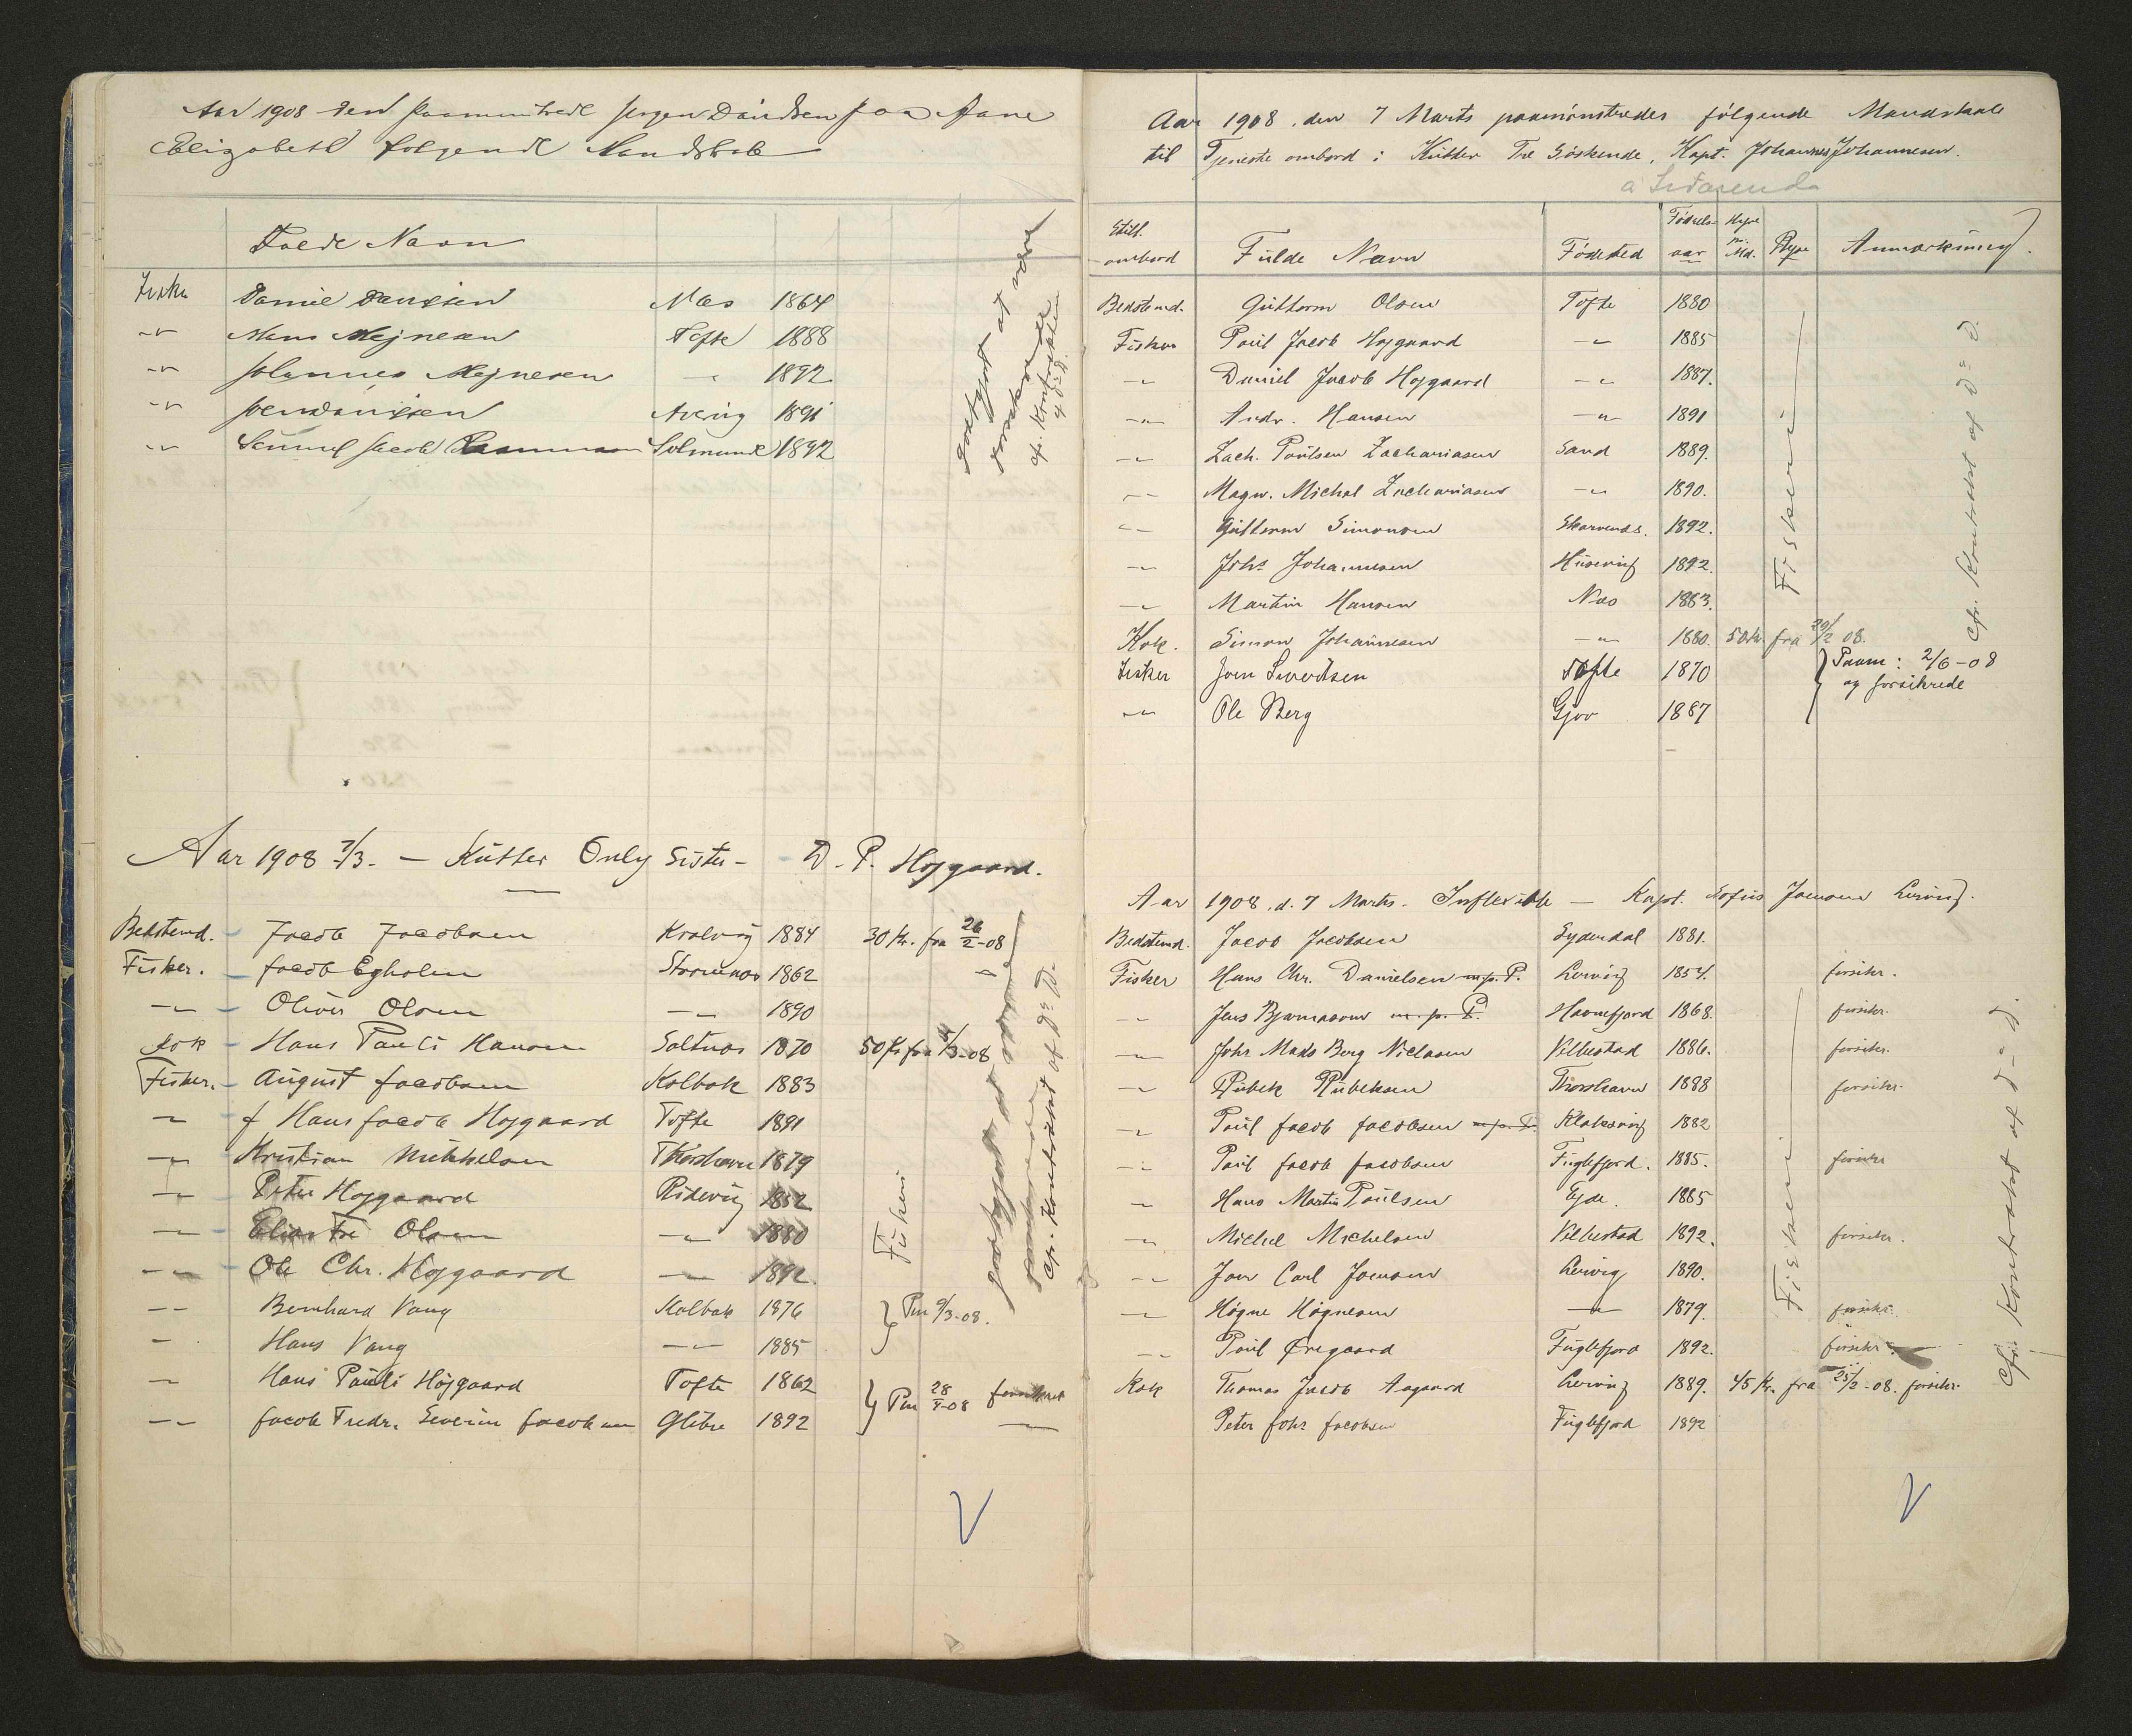 Aar 1908 den Paamunstrede Jørgen Danielsen paa Jane
Elizabeth følgende Mandskab
Fulde Navn
Fisker Daniel Danielsen Næs 1864
-"- Hans Mejnesen Tofte 1888
-"- Johannes Mejnesen -"- 1892
-"- 1891
-"- Samuel Jacob Rasmussen Solmunde 1892
Godtgjort at være
forsikrede
cfr. Kontrakten
af d: D.
Aar 1908 7/3. — Kutter Only Sister — D. P. Højgaard.
Bedstemd. Jacob Jacobsen Kralvig 1884 30 Kr. fra 26/2-08
Fisker. Jacob Egholm Strømnæs 1862 "
-"- Oliver Olsen -"- 1890
Kok Hans Pauli Hansen Saltnæs 1870 50 Kr fra 5/3-08
Fisker. August Jacobsen Kolbak 1883
-"- J Hans Jacob Højgaard Tofte 1891
-"- Kristian Mikkelsen Thorshavn 1879
-"- Peter Højgaard Ridevig 1852
-"- Elias Fre Olsen -"- 1880
-"- Ole Chr. Højgaard -"- 1892.
-"- Bernhard Vang Kolbak 1876 } Pm 9/3-08.
-"- Hans Vang -"- 1885
-"- Hans Pauli Højgaard Tofte 1862 } Pm 28/5-08 forsikret
-"- Jacob Fredr. Severin Jacobsen Glibre 1892 -"-
Fiskeri
godtgjort at være
forsikrede
Cfr. Kontrakt af D: D.
Aar 1908, den 7 Marts paamønstredes følgende Mandskab
til Tjeneste ombord i Kutter Tre Søskende, Kapt. Johannes Johannesen.
a Lidarenda
Still. ombord Fulde Navn Fødested Fødselsaar Hyre pr. Md. Rejse Anmærkning.
Bedstemd. Guttorm Olsen Tofte 1880
Fisker Poul Jacob Højgaard -"- 1885
-"- Daniel Jacob Højgaard -"- 1887.
-"- Andr. Hansen -"- 1891
-"- Zach. Poulsen Zachariasen Sand 1889.
-"- Magn. Michal Zachariasen -"- 1890.
-"- Guttorm Simonsen Skarvenæs. 1892.
-"- Johs Johannesen Husevig 1892.
-"- Martin Hansen Næs 1863.
Kok. Simon Johannesen -"- 1880. 50 Kr. fra 29/2 08.
Fisker Joen Sivertsen Tofte 1870 } Paam: 2/6-08
og forsikrede
-"- Ole Berg Gjov 1887
Fiskeri
Cfr. Kontrakt af D: D.
Aar 1908, d. 7 Marts. Inflexible — Kapt. Sofus Joensen Lervig.
Bedstemd. Jacob Jacobsen Syderdal 1881.
Fisker Hans Chr. Danielsen m.p.P. Lervig 1854. forsikr.
-"- Jens Bjarnason m.p.P. Havnefjord 1868. forsikr.
-"- Johs Mads Berg Niclasen Velbestad 1886. forsikr.
-"- Rubek Rubeksen Thorshavn 1888 forsikr.
-"- Poul Jacob Jacobsen m.p.P. Klaksvig 1882
-"- Poul Jacob Jacobsen Fuglefjord. 1885. forsikr
-"- Hans Martin Poulsen Ejde. 1885
-"- Michel Michelsen Velbestad 1892. forsikr.
-"- Joen Carl Joensen Lervig 1890.
-"- Høgne Høgnesen -"- 1879. forsikr.
-"- Poul Øregaard Fuglefjord 1892. forsikr
Kok Thomas Jacob Aagaard Lervig 1889. 45 Kr. fra 25/2-08. forsikr.
Peter Johs Jacobsen Fuglefjord 1892
Fiskeri
Cfr. Kontrakt af D: D.